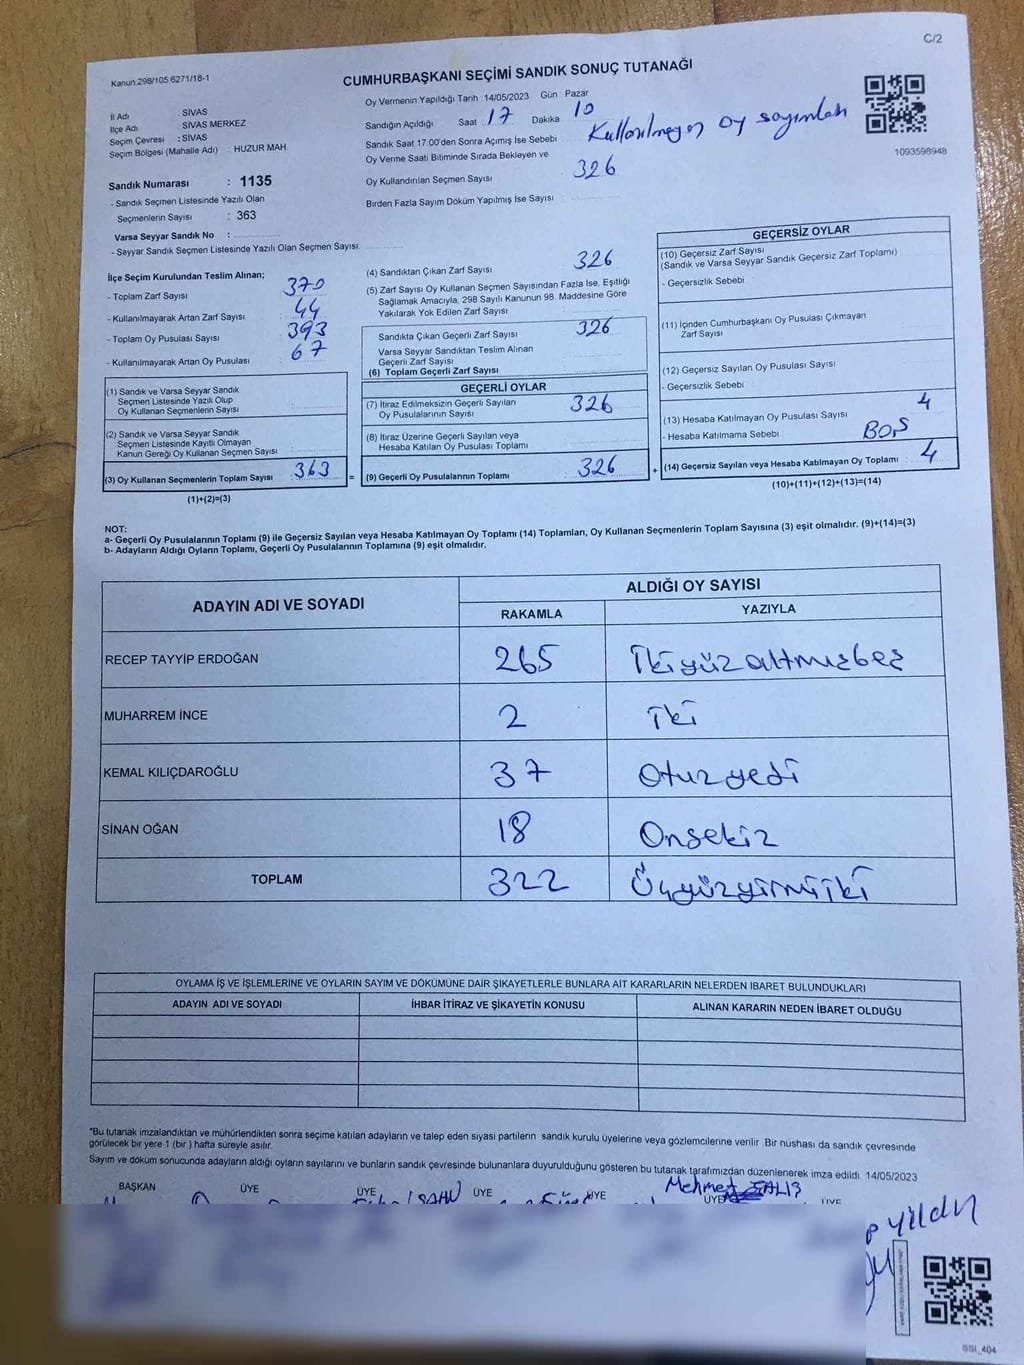 C/2
Kanun:298/105 6271/18-1
CUMHURBAŞKANI SEÇİMİ SANDIK SONUÇ TUTANAĞI
İl Adı : SİVAS
İlçe Adı : SİVAS MERKEZ
Seçim Çevresi : SİVAS
Seçim Bölgesi (Mahalle Adı) : HUZUR MAH.
Sandık Numarası : 1135
- Sandık Seçmen Listesinde Yazılı Olan
Seçmenlerin Sayısı : 363
Varsa Seyyar Sandık No :
- Seyyar Sandık Seçmen Listesinde Yazılı Olan Seçmen Sayısı:
Oy Vermenin Yapıldığı Tarih :14/05/2023 Gün : Pazar
Sandığın Açıldığı Saat : 17 Dakika : 10
Sandık Saat 17:00'den Sonra Açımış İse Sebebi : Kullanılmayan oy sayımları
Oy Verme Saati Bitiminde Sırada Bekleyen ve
Oy Kullandırılan Seçmen Sayısı : 326
Birden Fazla Sayım Döküm Yapılmış İse Sayısı :
1093598948
İlçe Seçim Kurulundan Teslim Alınan;
- Toplam Zarf Sayısı : 370
- Kullanılmayarak Artan Zarf Sayısı : 44
- Toplam Oy Pusulası Sayısı : 393
- Kullanılmayarak Artan Oy Pusulası : 67
(1) Sandık ve Varsa Seyyar Sandık
Seçmen Listesinde Yazılı Olup
Oy Kullanan Seçmenlerin Sayısı
(2) Sandık ve Varsa Seyyar Sandık
Seçmen Listesinde Kayıtlı Olmayan
Kanun Gereği Oy Kullanan Seçmen Sayısı
(3) Oy Kullanan Seçmenlerin Toplam Sayısı : 363 =
(1)+(2)=(3)
(4) Sandıktan Çıkan Zarf Sayısı : 326
(5) Zarf Sayısı Oy Kullanan Seçmen Sayısından Fazla İse, Eşitliği
Sağlamak Amacıyla, 298 Sayılı Kanunun 98. Maddesine Göre
Yakılarak Yok Edilen Zarf Sayısı :
Sandıkta Çıkan Geçerli Zarf Sayısı : 326
Varsa Seyyar Sandıktan Teslim Alınan
Geçerli Zarf Sayısı
(6) Toplam Geçerli Zarf Sayısı
GEÇERLİ OYLAR
(7) İtiraz Edilmeksizin Geçerli Sayılan
Oy Pusulalarının Sayısı : 326
(8) İtiraz Üzerine Geçerli Sayılan veya
Hesaba Katılan Oy Pusulası Toplamı
(9) Geçerli Oy Pusulalarının Toplamı : 326 +
GEÇERSİZ OYLAR
(10) Geçersiz Zarf Sayısı
(Sandık ve Varsa Seyyar Sandık Geçersiz Zarf Toplamı)
- Geçersizlik Sebebi
(11) İçinden Cumhurbaşkanı Oy Pusulası Çıkmayan
Zarf Sayısı
(12) Geçersiz Sayılan Oy Pusulası Sayısı
- Geçersizlik Sebebi
(13) Hesaba Katılmayan Oy Pusulası Sayısı : 4
- Hesaba Katılmama Sebebi : BOŞ
(14) Geçersiz Sayılan veya Hesaba Katılmayan Oy Toplamı : 4
(10)+(11)+(12)+(13)=(14)
NOT:
a- Geçerli Oy Pusulalarının Toplamı (9) ile Geçersiz Sayılan veya Hesaba Katılmayan Oy Toplamı (14) Toplamları, Oy Kullanan Seçmenlerin Toplam Sayısına (3) eşit olmalıdır. (9)+(14)=(3)
b- Adayların Aldığı Oyların Toplamı, Geçerli Oy Pusulalarının Toplamına (9) eşit olmalıdır.
ADAYIN ADI VE SOYADI
ALDIĞI OY SAYISI
RAKAMLA YAZIYLA
RECEP TAYYİP ERDOĞAN 265 İkiyüzaltmışbeş
MUHARREM İNCE 2 iki
KEMAL KILIÇDAROĞLU 37 Otuzyedi
SİNAN OĞAN 18 Onsekiz
TOPLAM 322 Üçyüzyirmiiki
OYLAMA İŞ VE İŞLEMLERİNE VE OYLARIN SAYIM VE DÖKÜMÜNE DAİR ŞİKAYETLERLE BUNLARA AİT KARARLARIN NELERDEN İBARET BULUNDUKLARI
ADAYIN ADI VE SOYADI İHBAR İTİRAZ VE ŞİKAYETİN KONUSU ALINAN KARARIN NEDEN İBARET OLDUĞU
"Bu tutanak imzalandıktan ve mühürlendikten sonra seçime katılan adayların ve talep eden siyasi partilerin sandık kurulu üyelerine veya gözlemcilerine verilir. Bir nüshası da sandık çevresinde
görülecek bir yere 1 (bir ) hafta süreyle asılır.
Sayım ve döküm sonucunda adayların aldığı oyların sayılarını ve bunların sandık çevresinde bulunanlara duyurulduğunu gösteren bu tutanak tarafımızdan düzenlenerek imza edildi. 14/05/2023
BAŞKAN ÜYE ÜYE ÜYE ÜYE ÜYE ÜYE
Mehmet